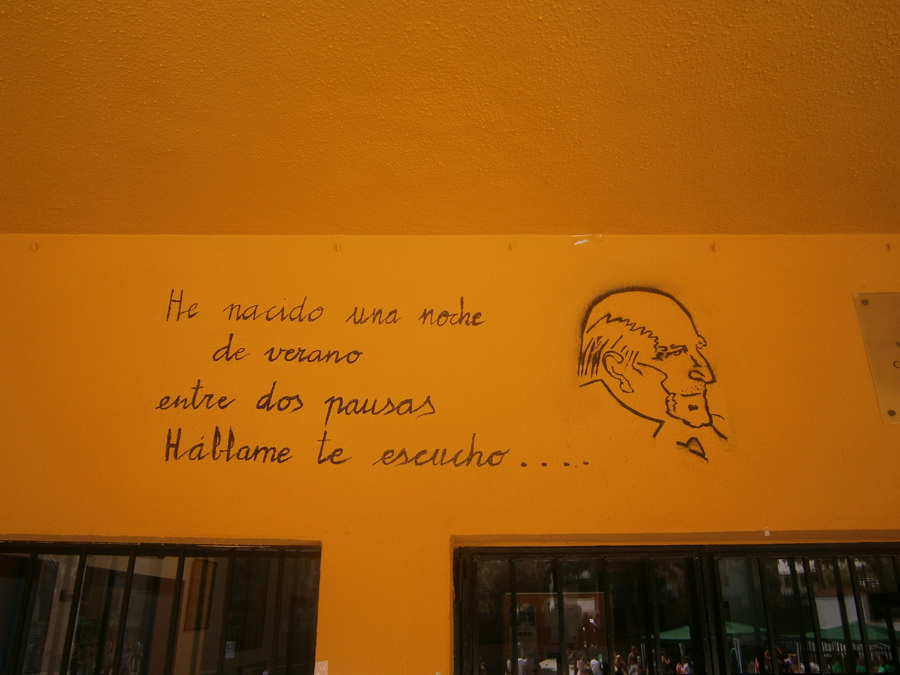 He nacido una noche
de verano
entre dos pausas
Háblame te escucho.....